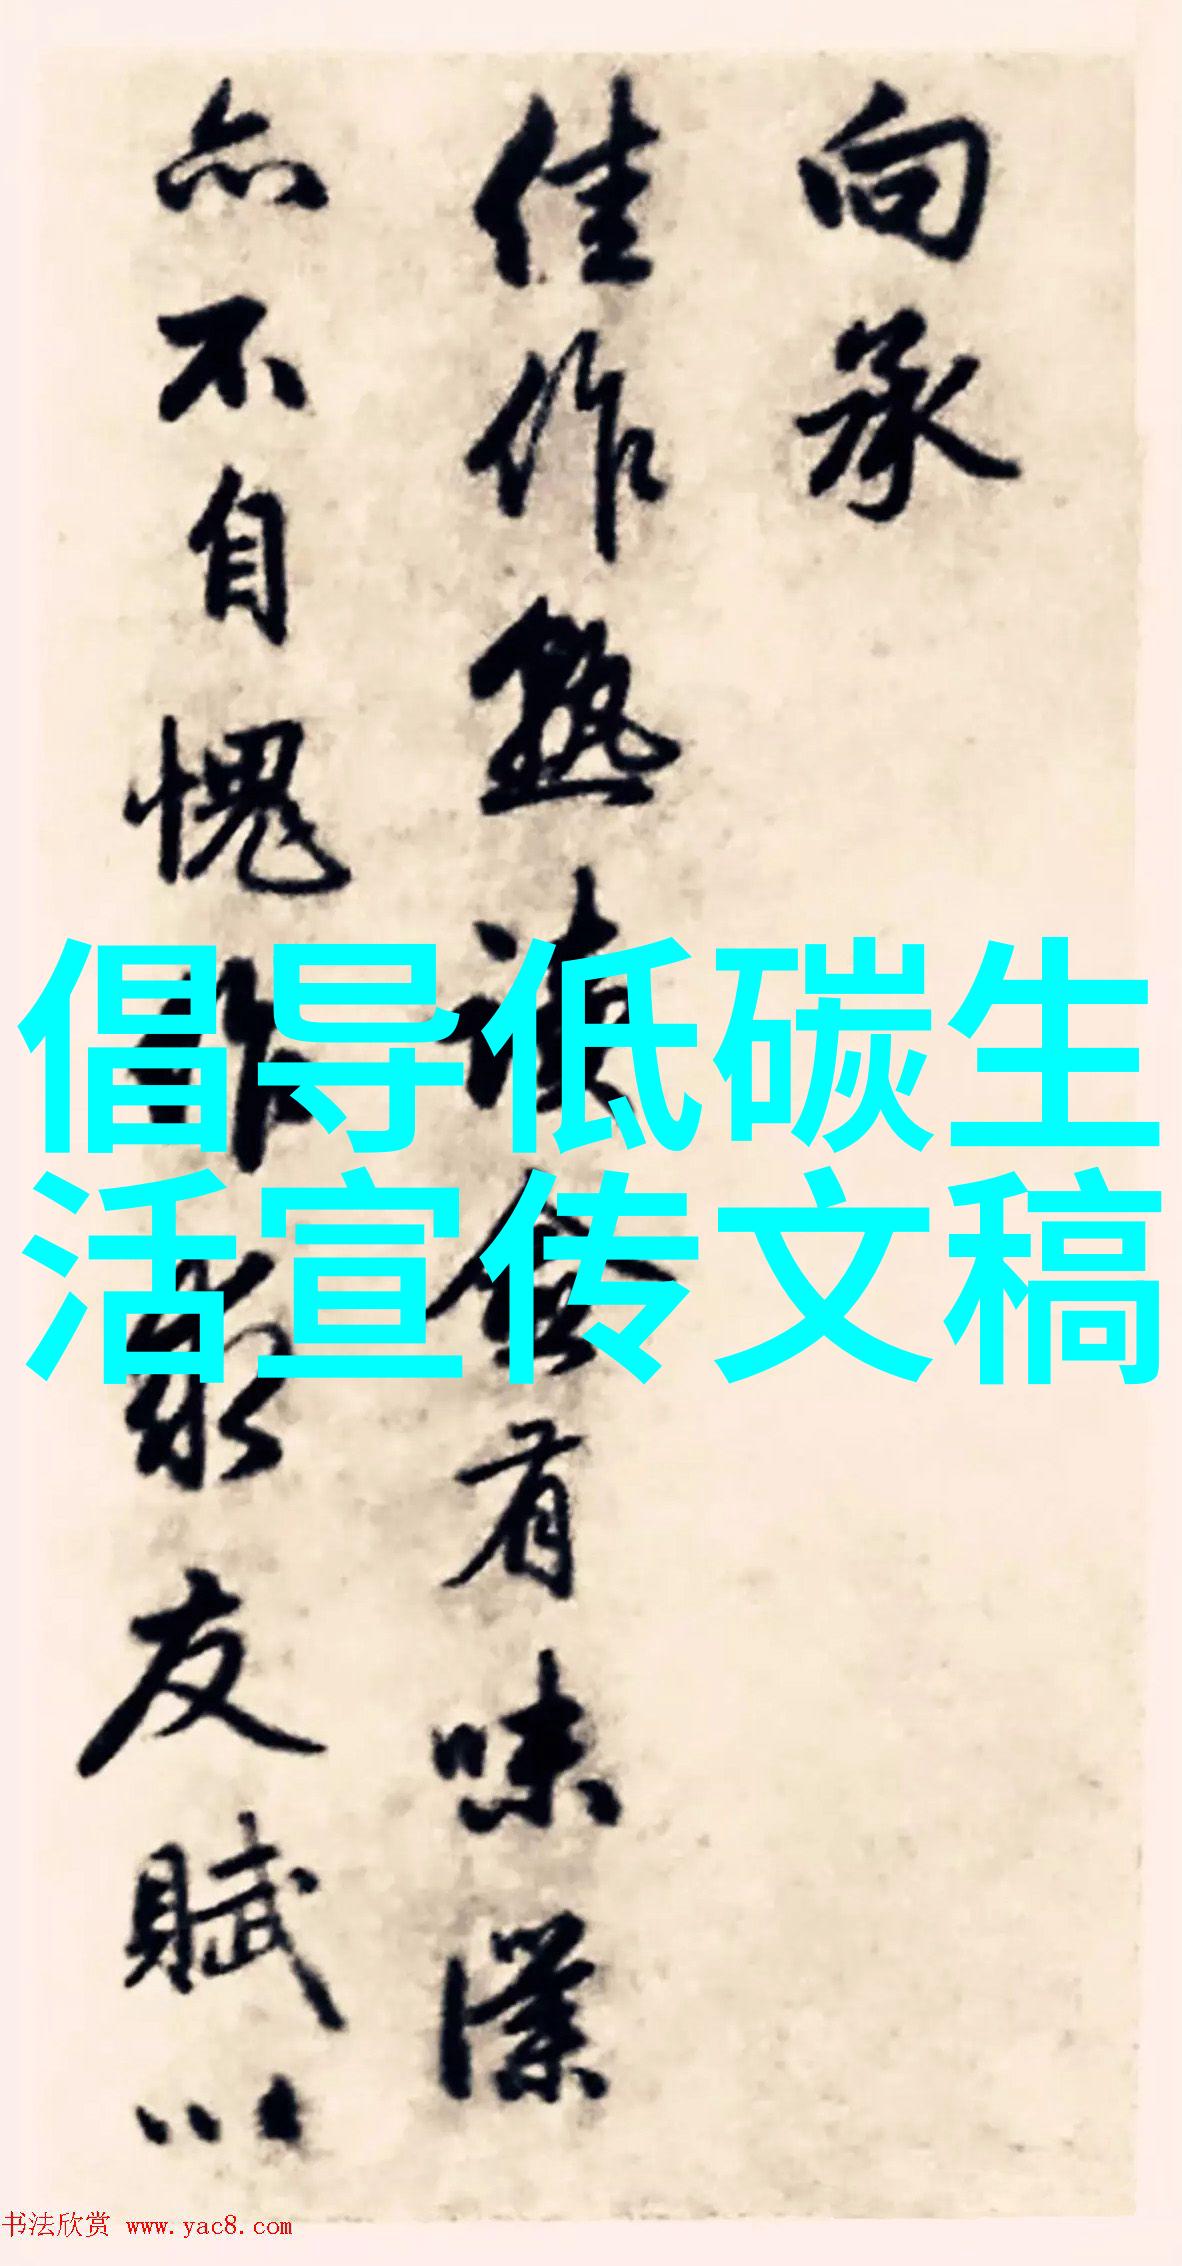 向承
佳作熟读有味僕
亦不自愧作友賦以
倡导低碳生
活宣传文稿
书法欣赏 www.yac8.com